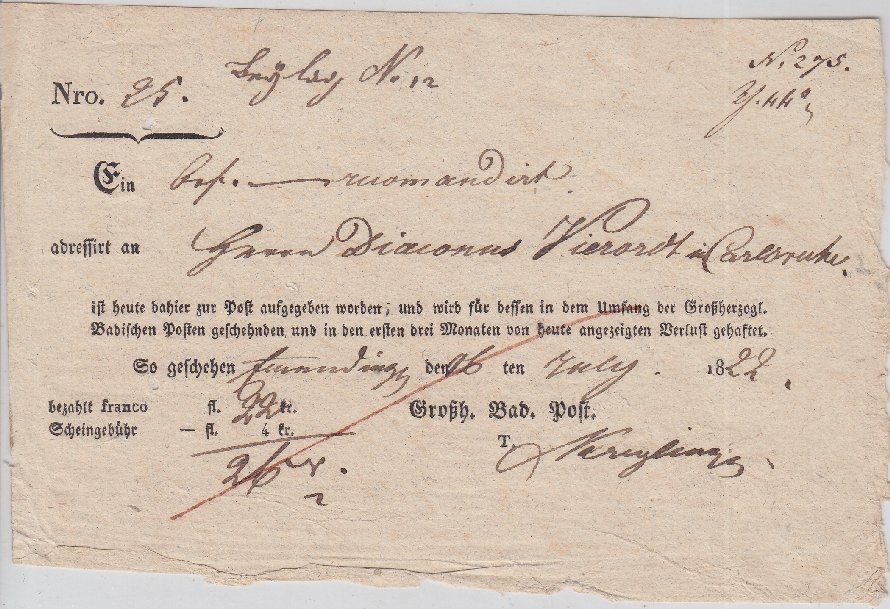 Beylag No. 12
No. 275.
Nro. 25.
Ein Brf. recomandirt
adressirt an Herrn Diaconus Vierordt in Carlsruhe.
ist heute dahier zur Post aufgegeben worden, und wird für dessen in dem Umfang der Großherzogl.
Badischen Posten geschehnden, und in den ersten drei Monaten von heute angezeigten Verlust gehaftet.
So geschehen Emmending den 16 ten July. 1822.
bezahlt franco fl. 22 kr. Großh. Bad. Post.
Scheingebühr — fl. 4 kr. T
26 x.